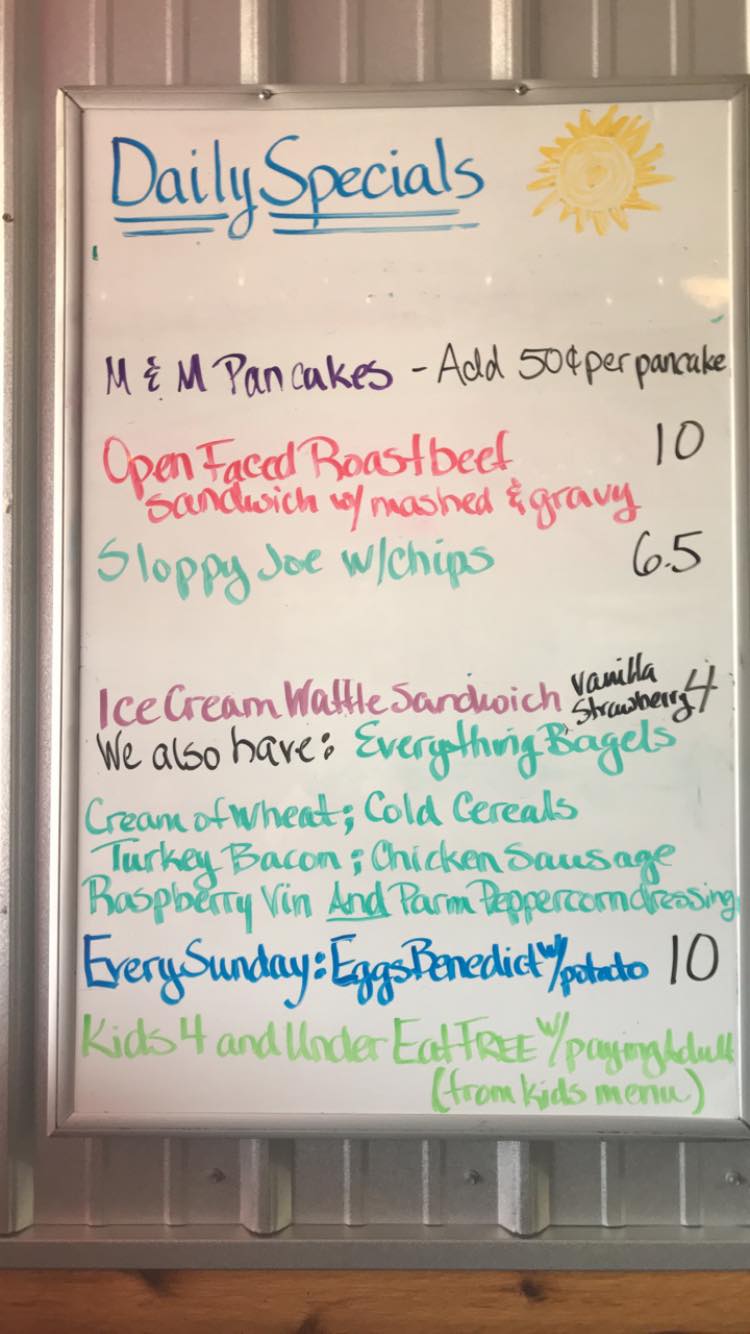 Daily Specials
M & M Pancakes - Add 50¢ per pancake
Open Faced Roast beef 10
sandwich w/ mashed & gravy
Sloppy Joe w/chips 6.5
Ice Cream Waffle Sandwich vanilla strawberry 4
We also have: Everything Bagels
Cream of Wheat; Cold Cereals
Turkey Bacon; Chicken Sausage
Raspberry Vin And Parm Peppercorn dressing
Every Sunday: Eggs Benedict w/ potato 10
Kids 4 and Under Eat FREE w/ paying Adult
(from kids menu)